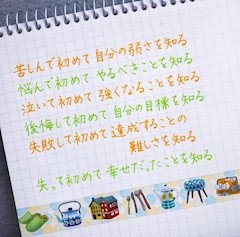 苦しんで初めて自分の弱さを知る
悩んで初めてやるべきことを知る
泣いて初めて強くなることを知る
後悔して初めて自分の目標を知る
失敗して初めて達成することの
難しさを知る
失って初めて幸せだったことを知る